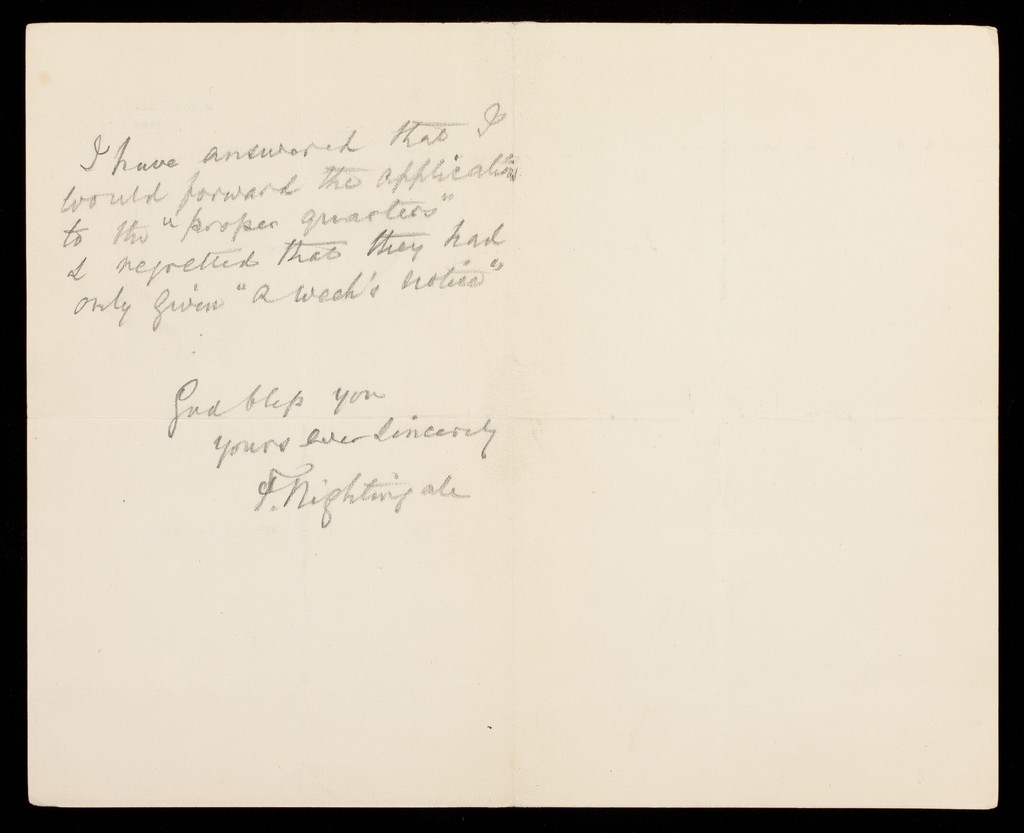 I have answered that I
would forward the application
to the "proper quarters"
& regretted that they had
only given "a week's notice"
God bless you
yours ever sincerely
F. Nightingale